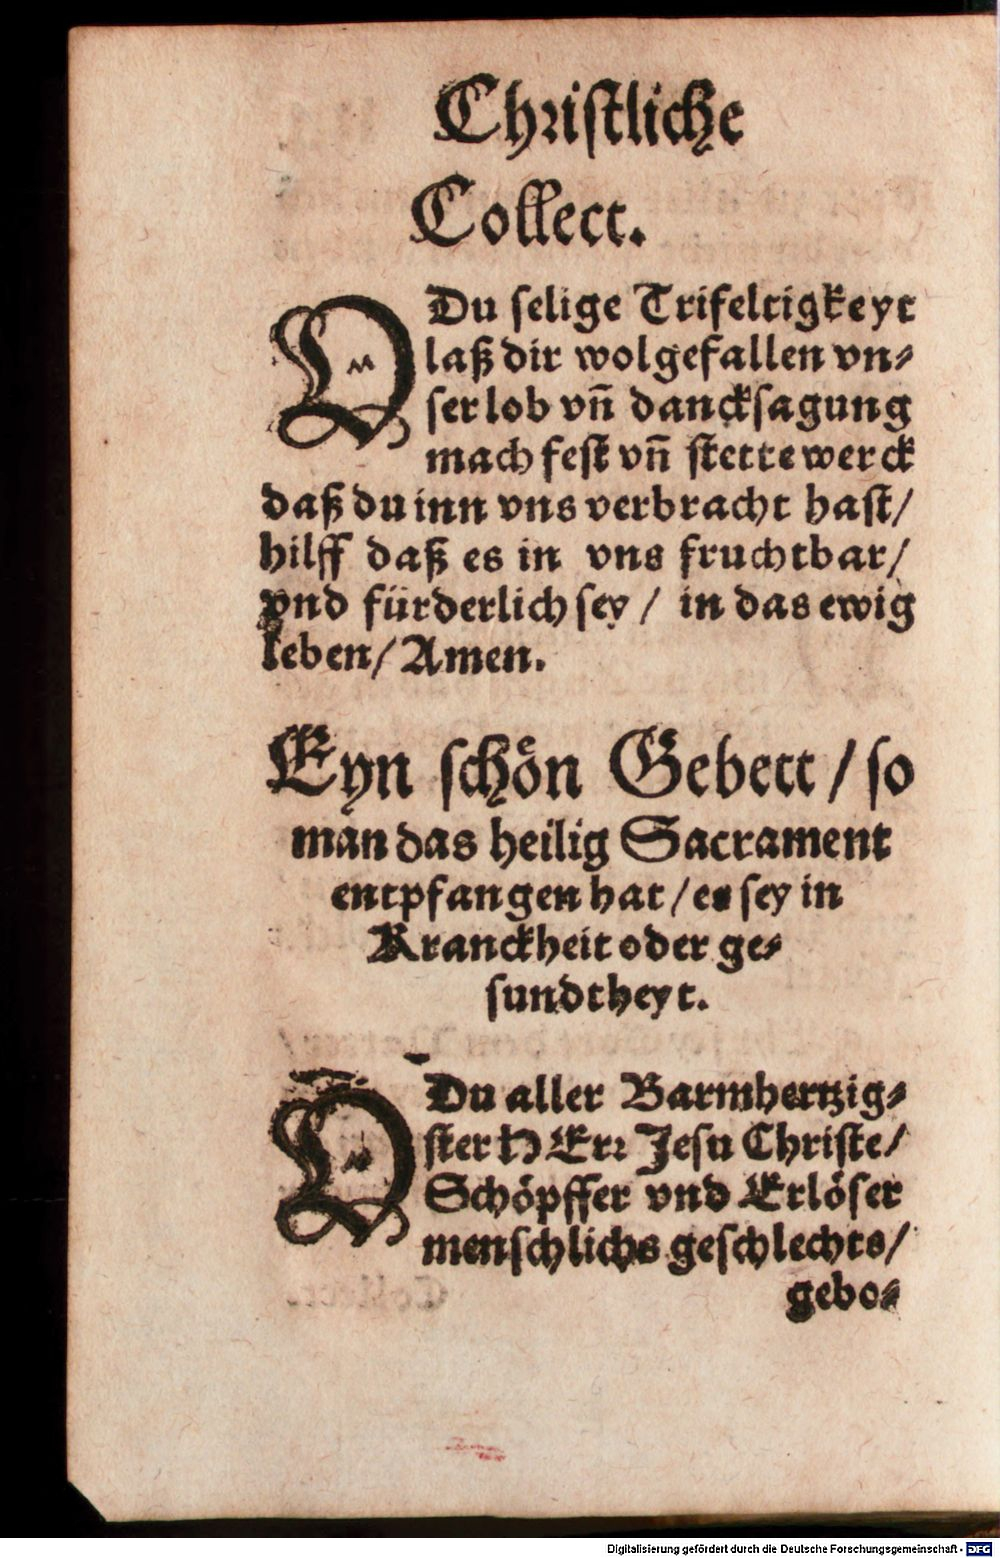 Christliche
Collect.
O Du selige Trifeltigkeyt
laß dir wolgefallen vn⸗
ser lob vñ dancksagung
mach fest vñ stette werck
daß du inn vns verbracht hast/
hilff daß es in vns fruchtbar/
vnd fürderlich sey / in das ewig
leben/ Amen.
Eyn schoͤn Gebett / so
man das heilig Sacrament
entpfangen hat / es sey in
Kranckheit oder ge⸗
sundtheyt.
O Du aller Barmhertzig⸗
ster HErr Jesu Christe/
Schöpffer vnd Erlöser
menschlichs geschlechts/
gebo⸗
Digitalisierung gefördert durch die Deutsche Forschungsgemeinschaft - DFG